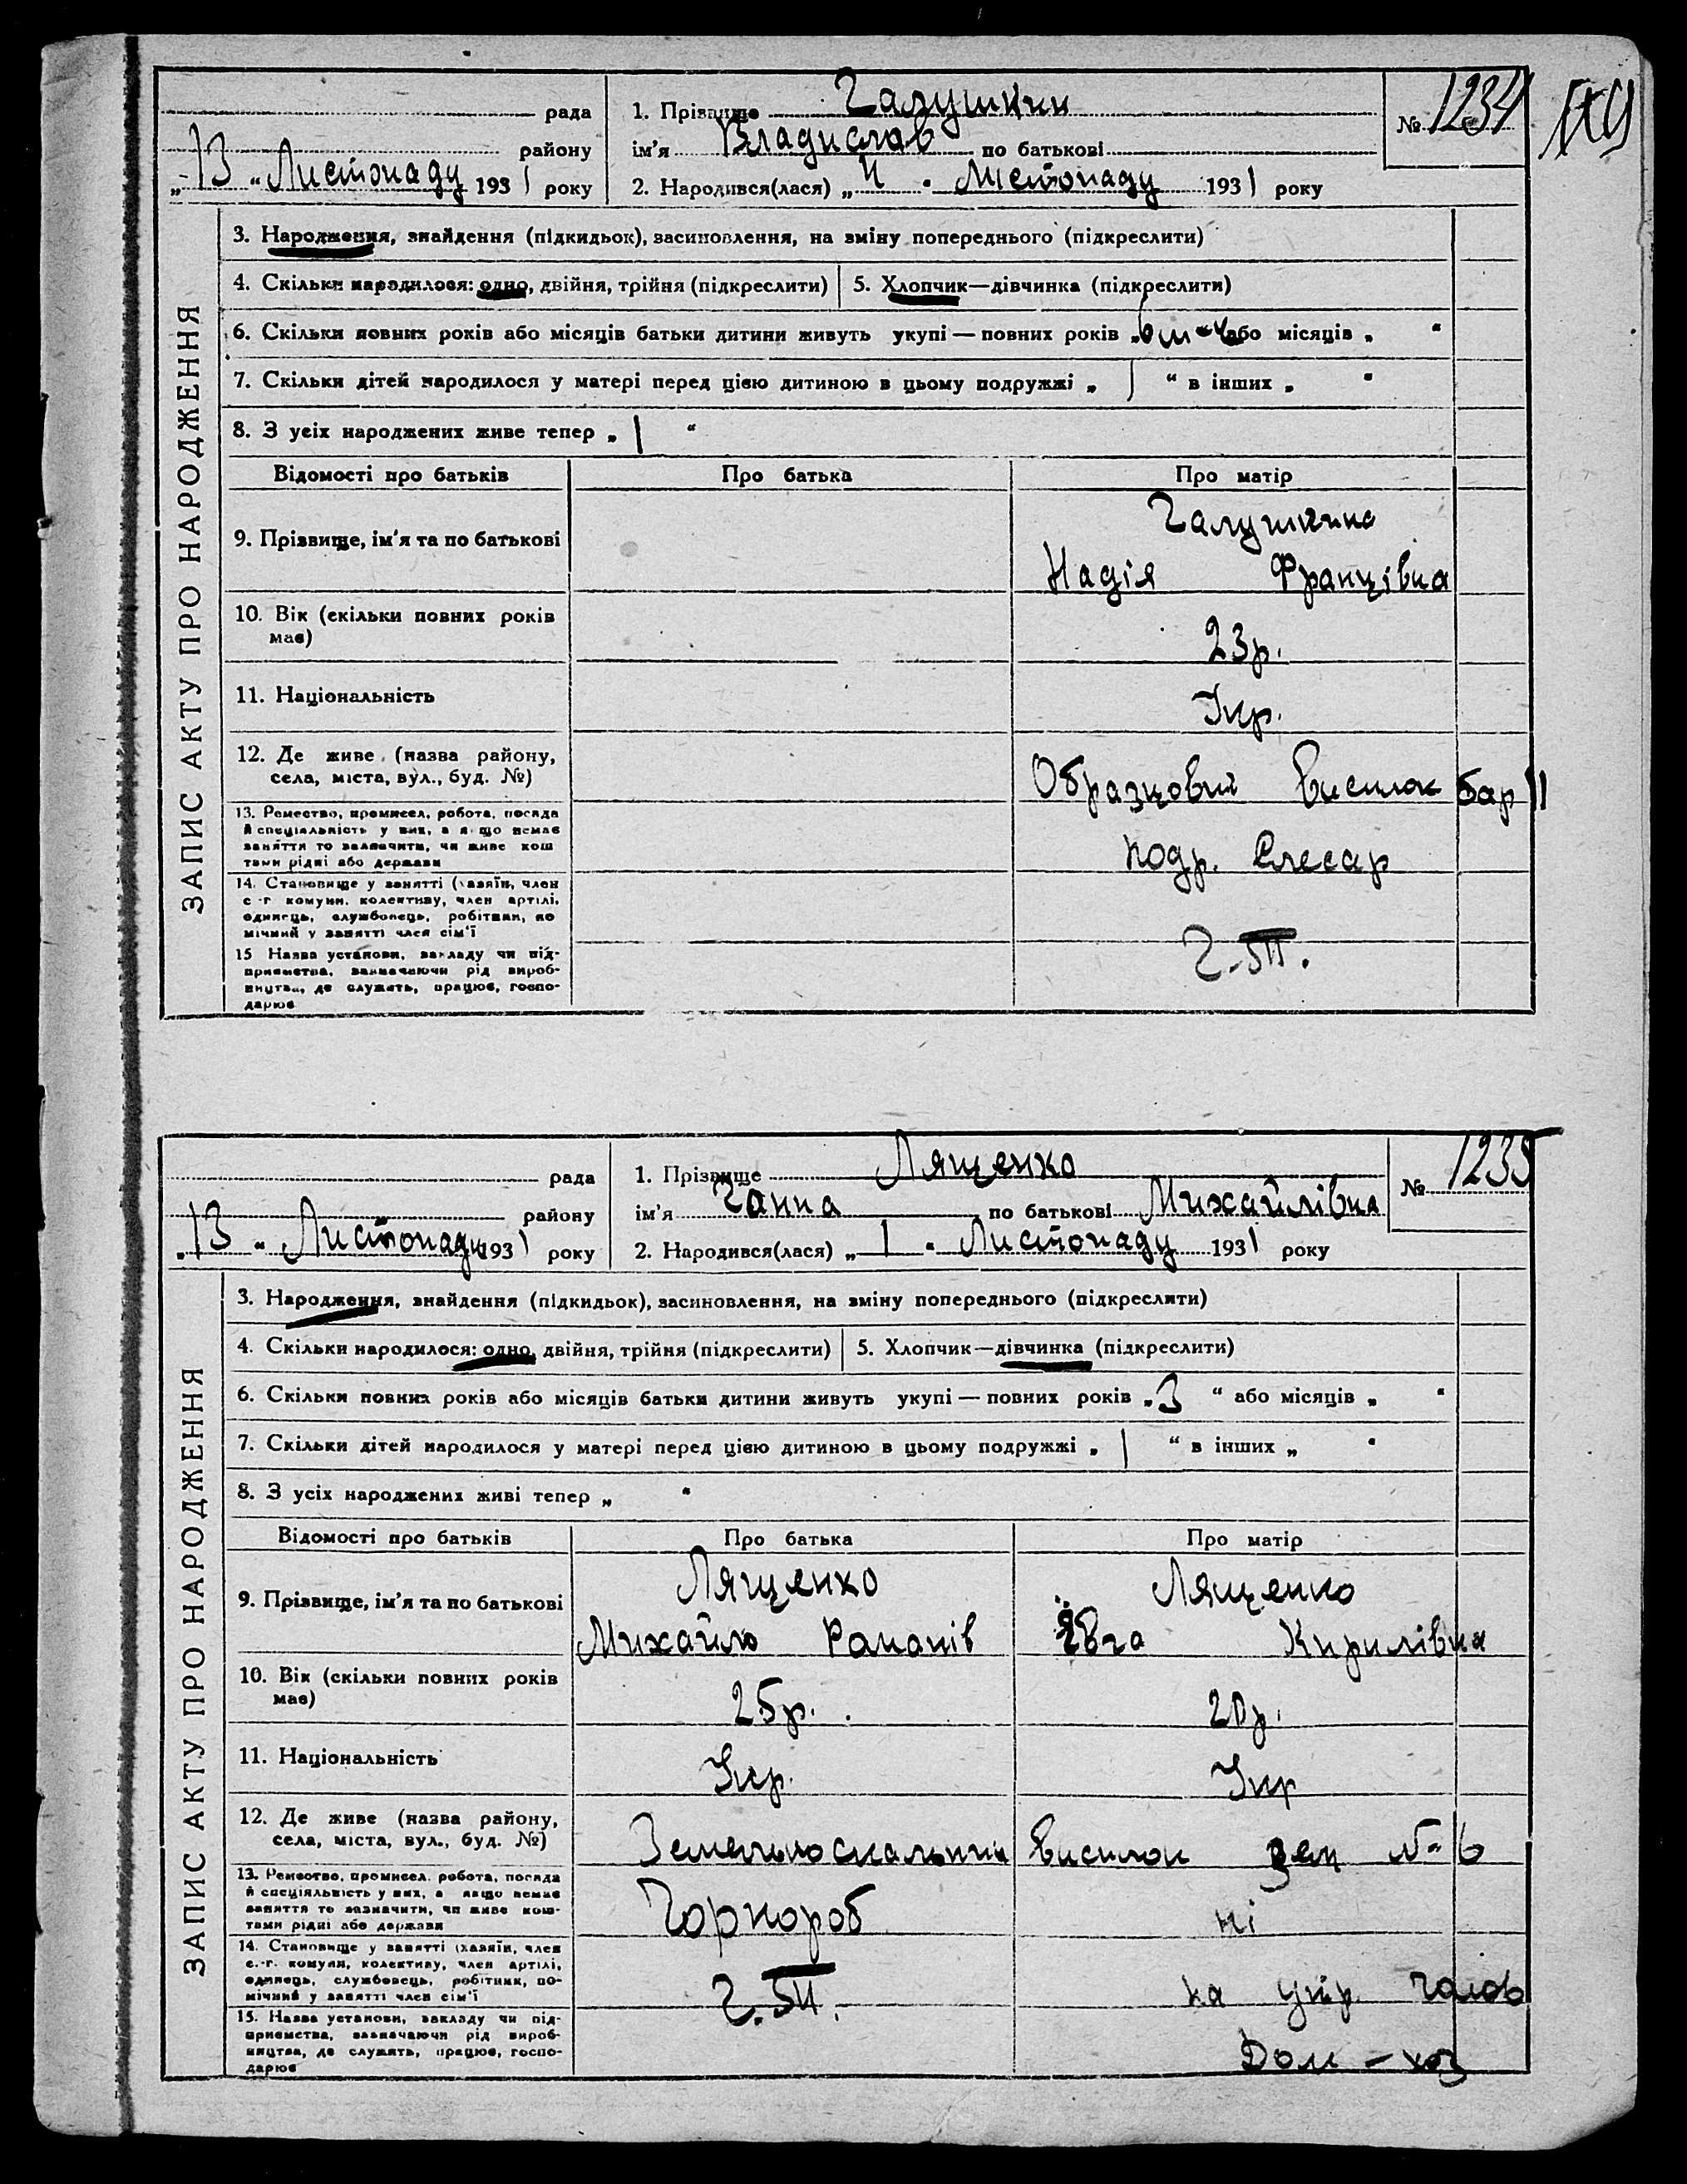 рада
району
„13“ Листопаду 1931 року
1. Прізвище Галушкин
ім'я Владислав по батькові
2. Народився(лася) „ “ Листопаду 1931 року
№ 1234
ЗАПИС АКТУ ПРО НАРОДЖЕННЯ
3. Народження, знайдення (підкидьок), засиновлення, на зміну попереднього (підкреслити)
4. Скільки народилося: одно, двійня, трійня (підкреслити)
5. Хлопчик—дівчинка (підкреслити)
6. Скільки повних років або місяців батьки дитини живуть укупі — повних років „ або місяців „ “
7. Скільки дітей народилося у матері перед цією дитиною в цьому подружжі „1 “ в інших „ “
8. З усіх народжених живе тепер „1 “
Відомості про батьків Про батька Про матір
9. Прізвище, ім'я та по батькові
Галушкина
Надія Францівна
10. Вік (скільки повних років має)
23р.
11. Національність
Укр.
12. Де живе (назва району, села, міста, вул., буд. №)
Образцовий Виселок бар 11
13. Ремество, промисел, робота, посада й спеціяльність у них, а якщо немає заняття то зазначити, чи живе коштами рідні або держави
подр. Слесар
14. Становище у занятті (хазяїн, член с.-г. комуни, колективу, член артілі, одинець, службовець, робітник, помічний у занятті член сім'ї
15 Назва установи, закладу чи підприємства, зазначаючи рід виробництва, де служить, працює, господарює
рада
району
„13“ Листопаду 1931 року
1. Прізвище Лященко
ім'я Ганна по батькові Михайлівна
2. Народився(лася) „1“ Листопаду 1931 року
№ 1235
ЗАПИС АКТУ ПРО НАРОДЖЕННЯ
3. Народження, знайдення (підкидьок), засиновлення, на зміну попереднього (підкреслити)
4. Скільки народилося: одно, двійня, трійня (підкреслити)
5. Хлопчик—дівчинка (підкреслити)
6. Скільки повних років або місяців батьки дитини живуть укупі — повних років „3 “ або місяців „ “
7. Скільки дітей народилося у матері перед цією дитиною в цьому подружжі „1 “ в інших „ “
8. З усіх народжених живі тепер „ “
Відомості про батьків Про батька Про матір
9. Прізвище, ім'я та по батькові
Лященко Лященко
Михайло Романів Евга Кирилівна
10. Вік (скільки повних років має)
25р. 20р.
11. Національність
Укр. Укр
12. Де живе (назва району, села, міста, вул., буд. №)
Виселок зем № 6
13. Ремество, промисел, робота, посада й спеціяльність у них, а якщо немає заняття то зазначити, чи живе коштами рідні або держави
Чорнороб ні
14. Становище у занятті (хазяїн, член с.-г. комуни, колективу, член артілі, одинець, службовець, робітник, помічний у занятті член сім'ї
на утр. голов
15. Назва установи, закладу чи підприємства, зазначаючи рід виробництва, де служить, працює, господарює
Дом - хоз